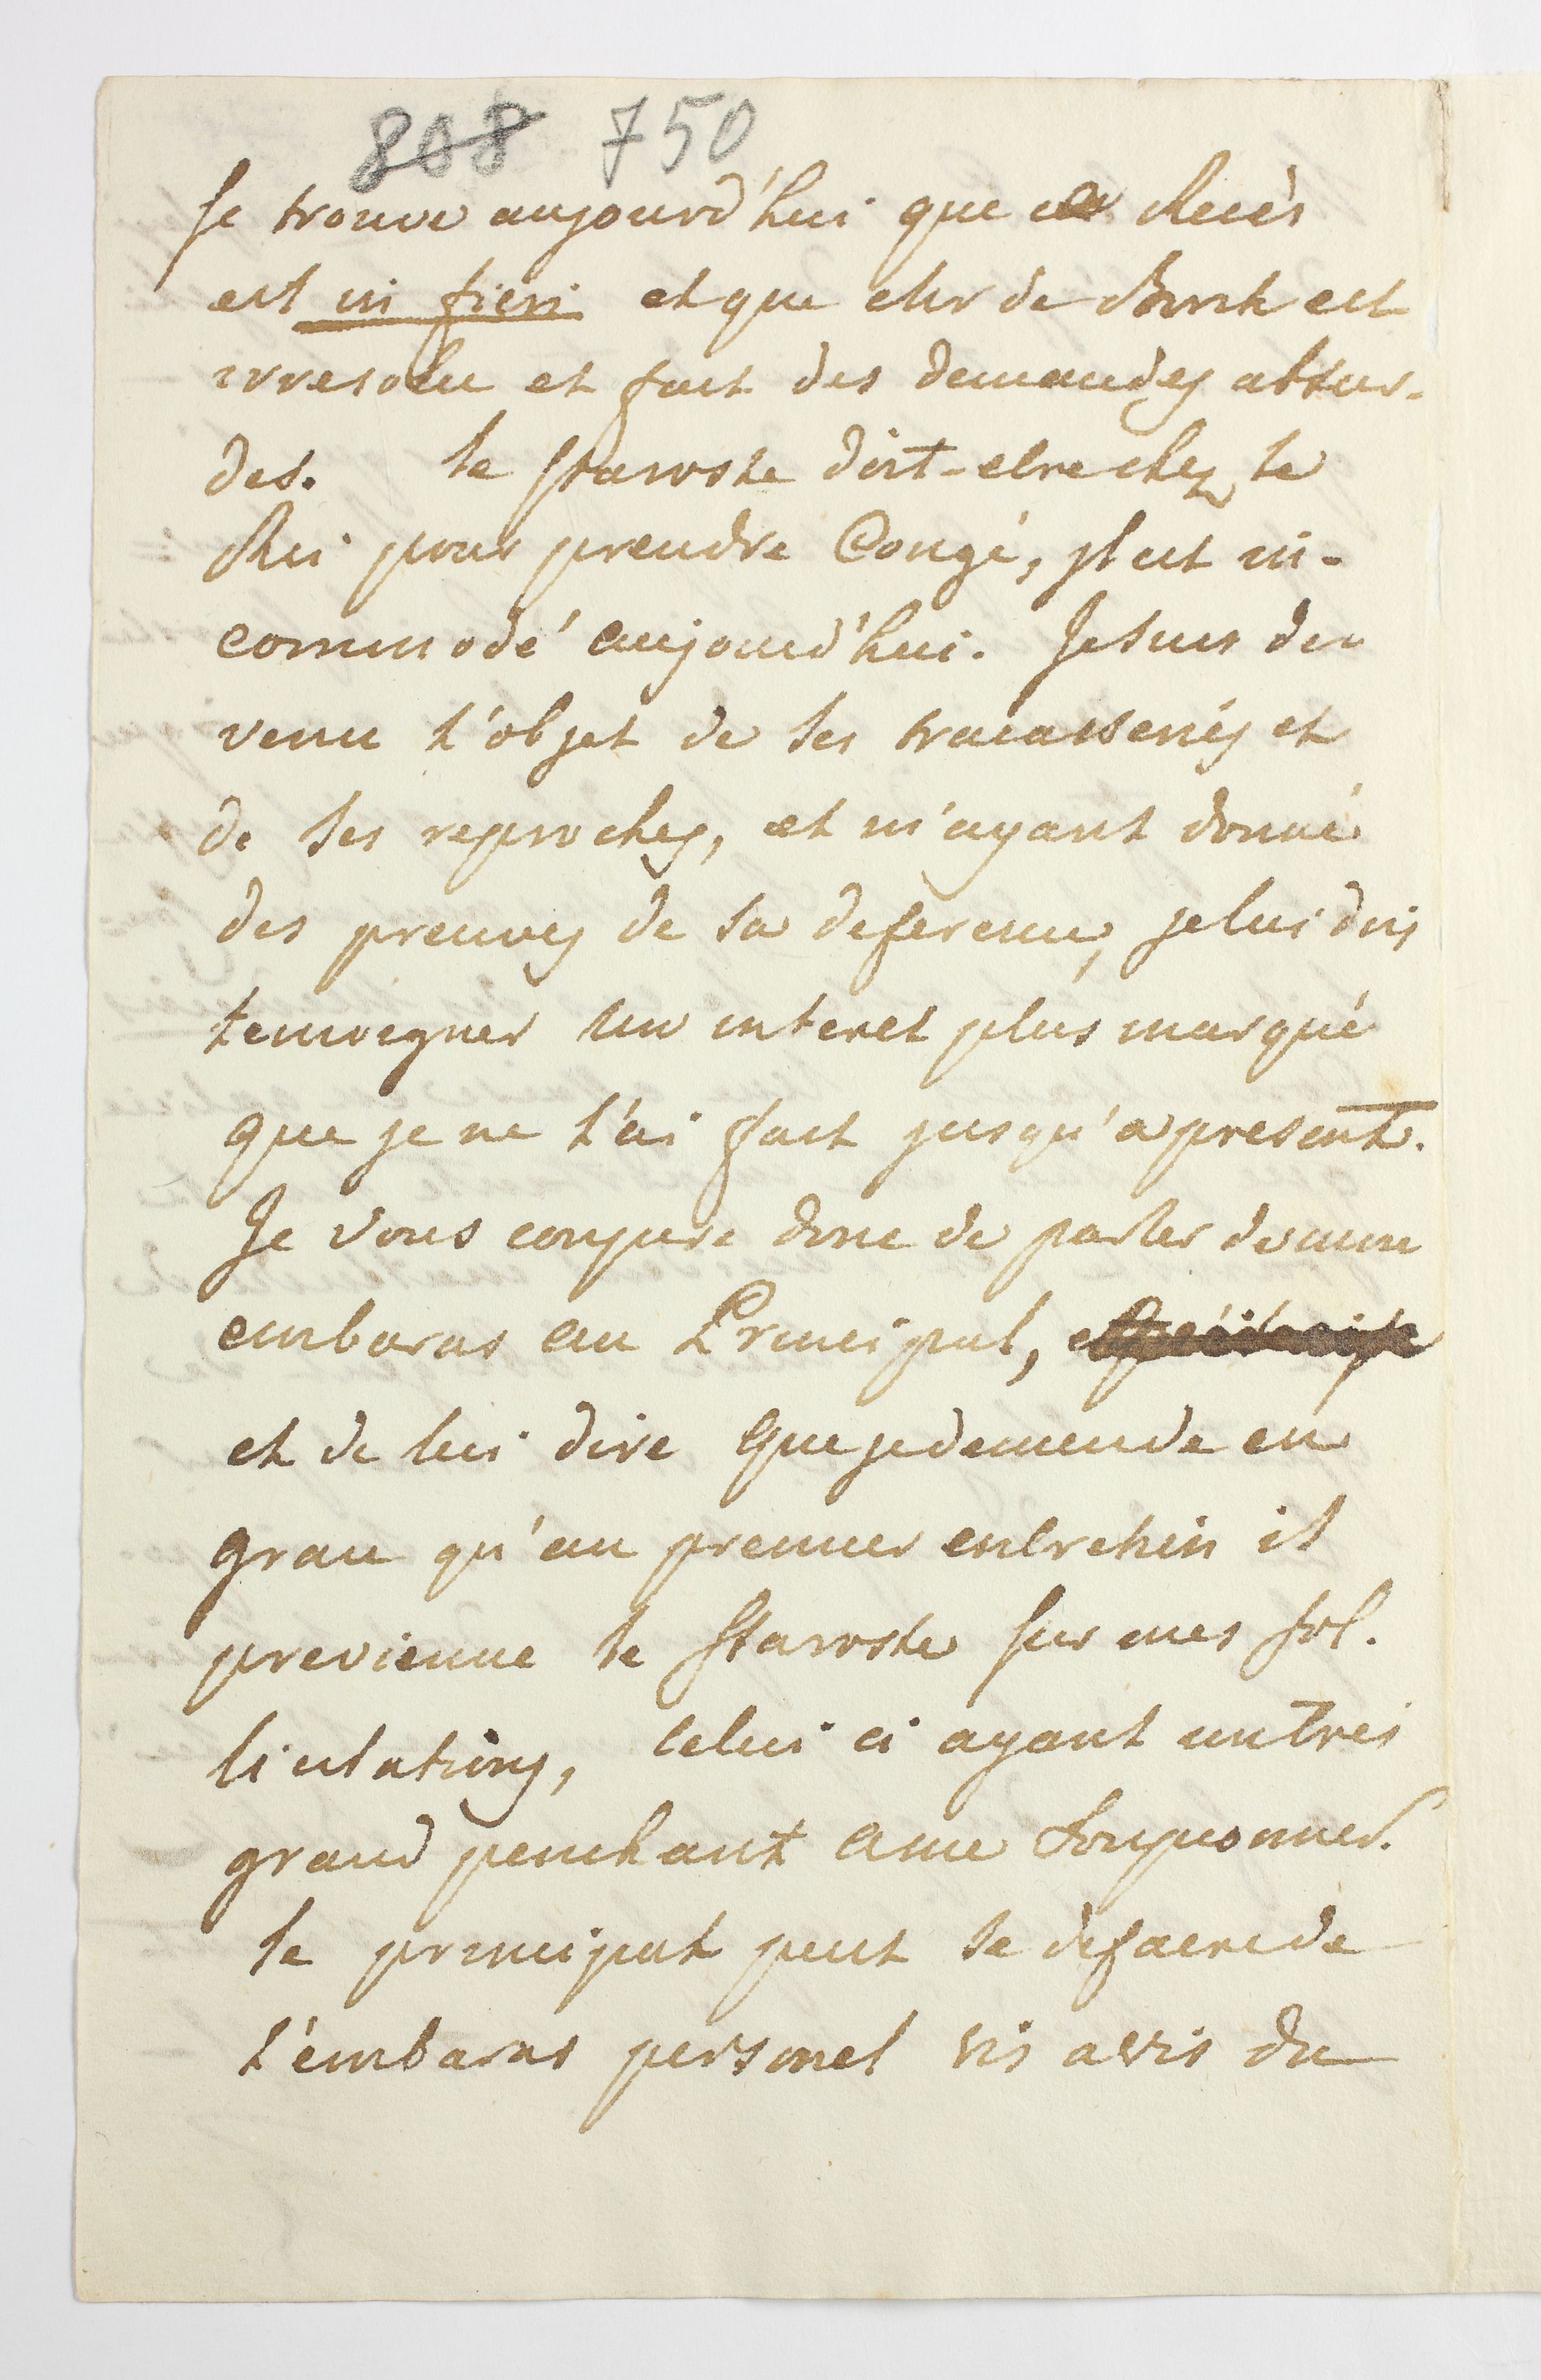 808 750
Je trouve aujourd'hui que ce Recès
est in fieri et que Mr de Borck est
irresolu et fait des demandes absur-
des. le Staroste doit-etre chez le
Roi pour prendre Congé, Il est in-
commodé aujourd'hui. Je suis de
venu l'objet de ses tracasseries et
de ses reproches, et m'ayant donné
des preuves de sa deference, je lui dois
temoigner un interet plus marqué
que je ne l'ai fait jusqu'a present.
Je vous conjure donc de parler de mon
embaras au Principal,
et de lui dire que je demende en
grace qu'au premier entretien il
previenne le Staroste sur mes sol.
licitations, celui ci ayant un tres
grand penchant a me soupconner.
le principal peut se defaire de
l'embaras personel vis a vis du